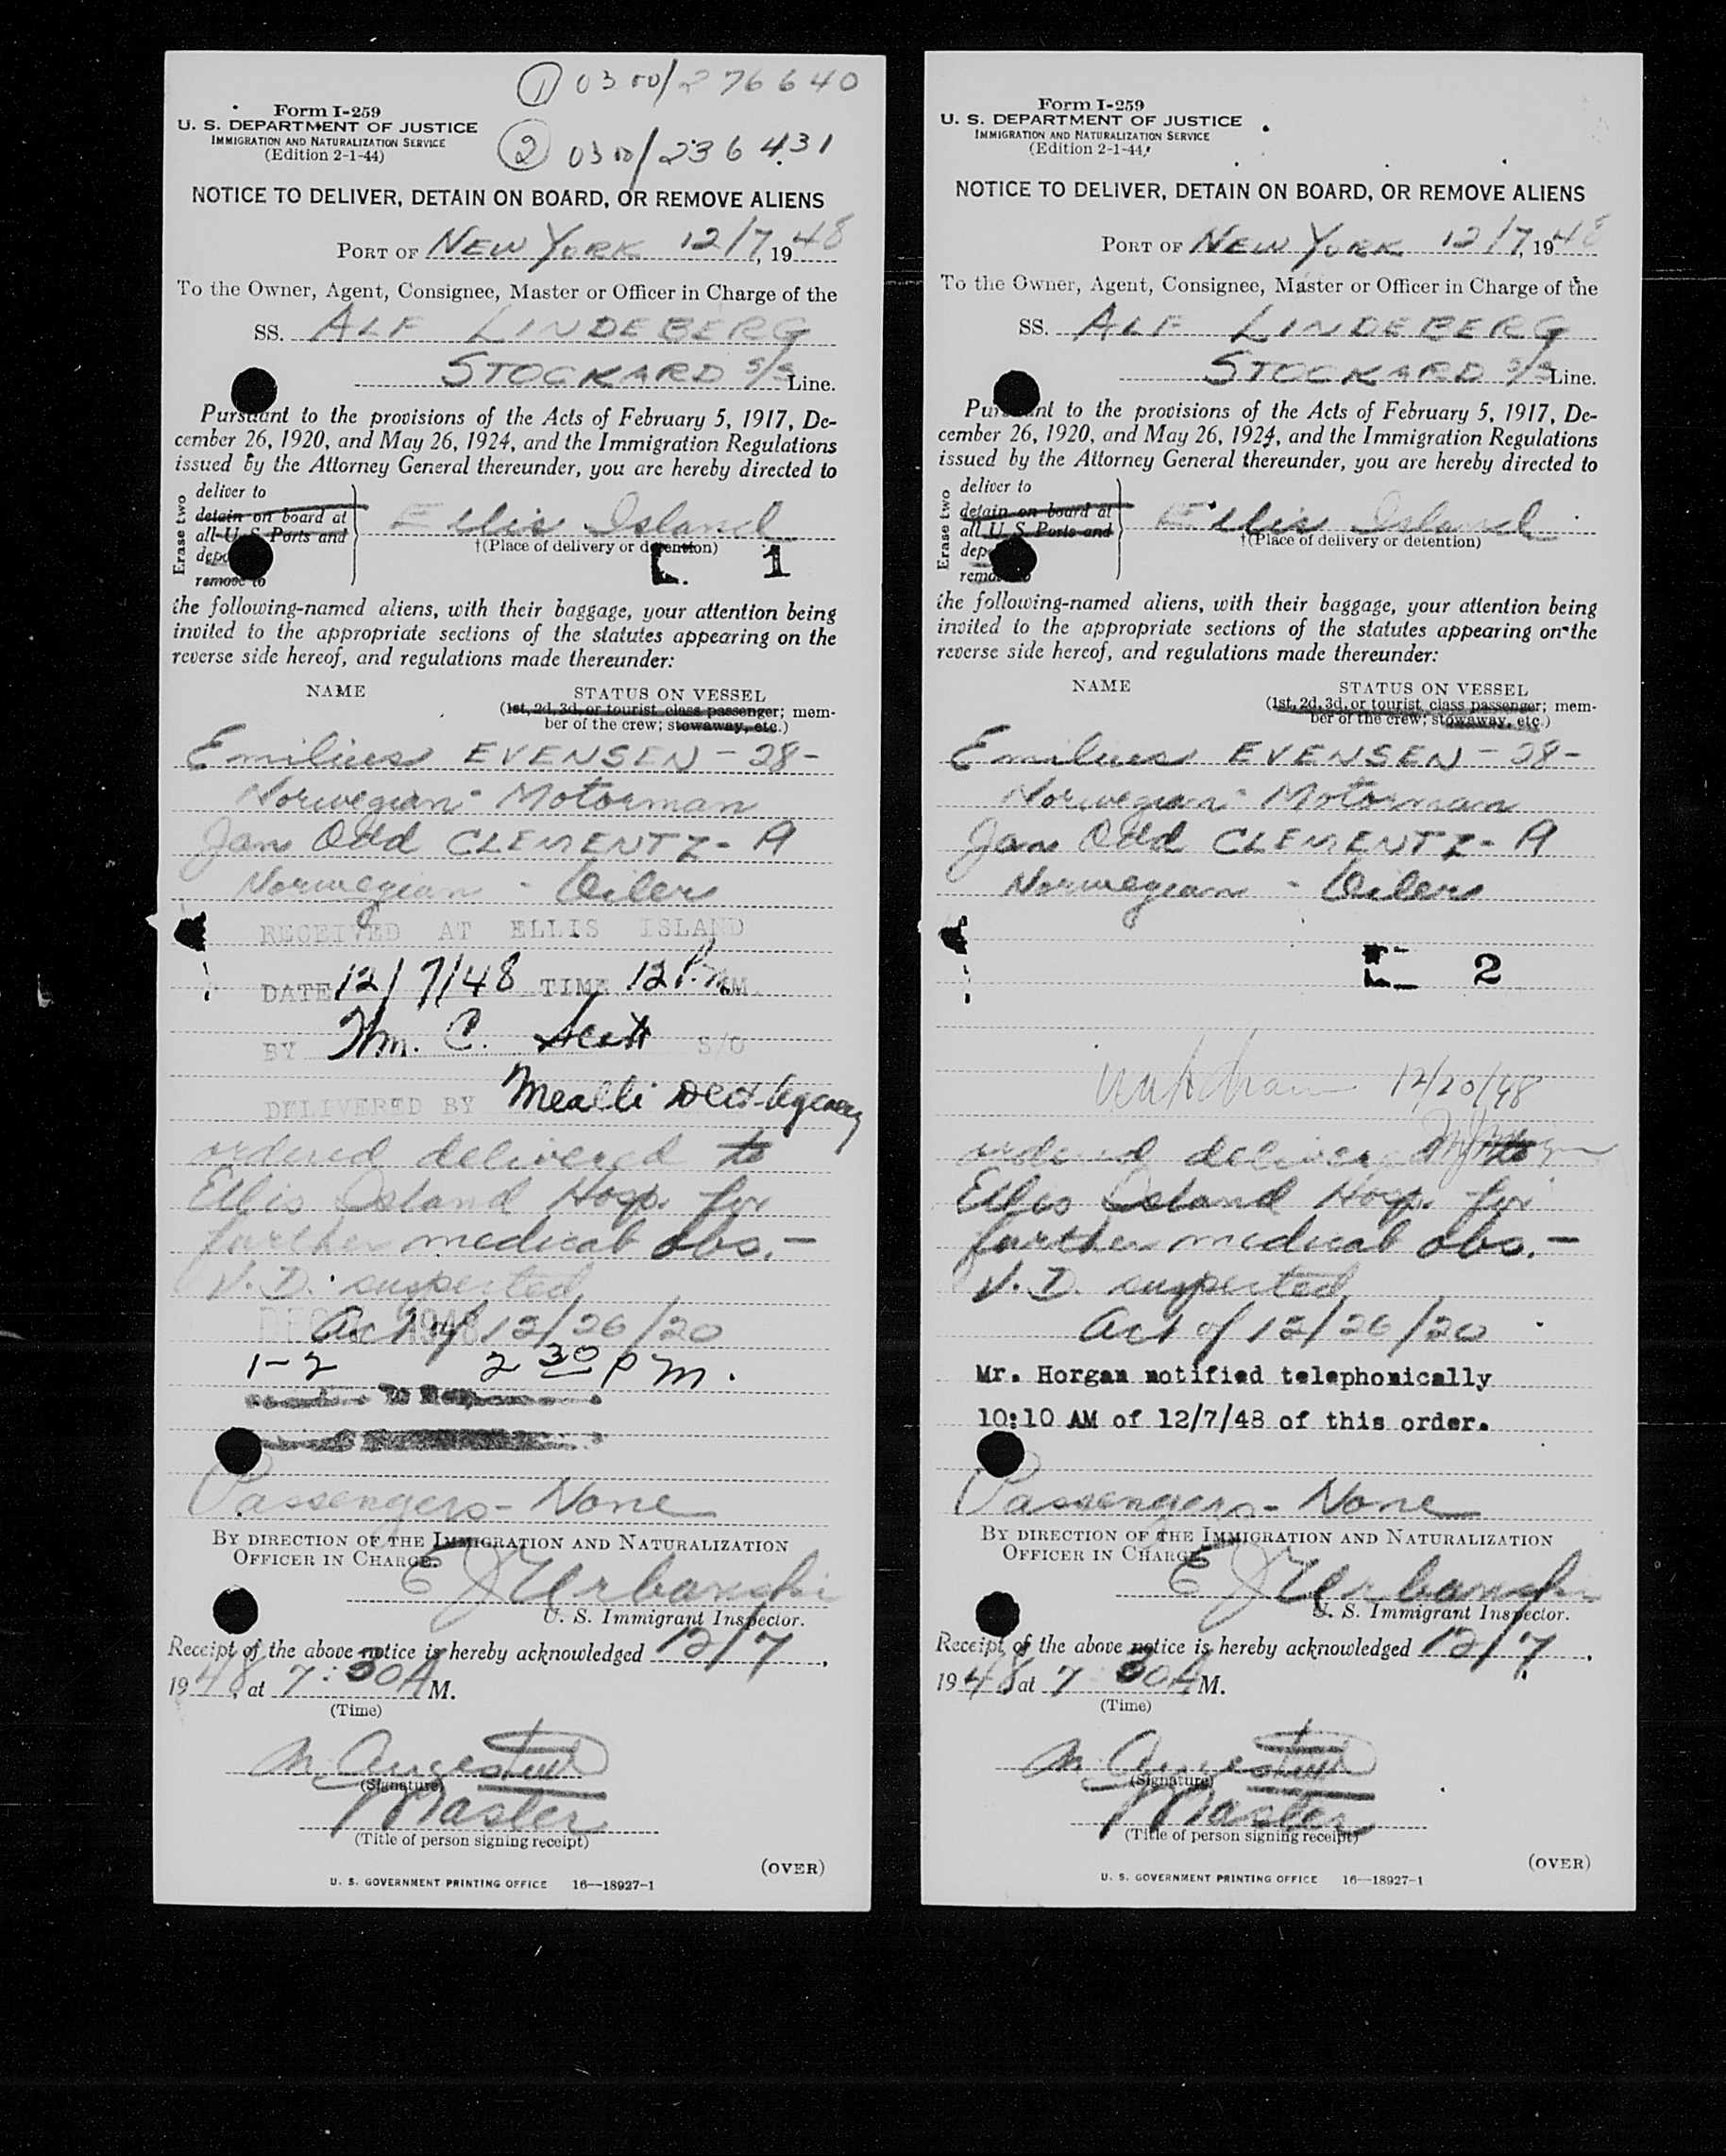 ① 0300/276640
Form I-259
U. S. DEPARTMENT OF JUSTICE
IMMIGRATION AND NATURALIZATION SERVICE
(Edition 2-1-44)
② 0300/236431
NOTICE TO DELIVER, DETAIN ON BOARD, OR REMOVE ALIENS
PORT OF NEW YORK 12/7, 1948
To the Owner, Agent, Consignee, Master or Officer in Charge of the
SS. ALF LINDEBERG
STOCKARD S/S Line.
Pursuant to the provisions of the Acts of February 5, 1917, De-
cember 26, 1920, and May 26, 1924, and the Immigration Regulations
issued by the Attorney General thereunder, you are hereby directed to
Erase two
deliver to
detain on board at
all U. S. Ports and
remove to
Ellis Island
†(Place of delivery or detention)
1
the following-named aliens, with their baggage, your attention being
invited to the appropriate sections of the statutes appearing on the
reverse side hereof, and regulations made thereunder:
NAME STATUS ON VESSEL
(1st, 2d, 3d, or tourist class passenger; mem-
ber of the crew; stowaway, etc.)
Emilius EVENSEN - 28 -
Norwegian - Motorman
Jan Odd CLEMENTZ - 19
Norwegian - Oiler
RECEIVED AT ELLIS ISLAND
DATE 12/7/48 TIME 12 P.M.
BY Wm. C. Scott S/O
DELIVERED BY Mealli Det. Agency
ordered delivered to
Ellis Island Hosp. for
further medical obs. -
V. D. suspected
Act of 12/26/20
1-2 2 30 PM.
Passengers - None
BY DIRECTION OF THE IMMIGRATION AND NATURALIZATION
OFFICER IN CHARGE.
E J Urbanski
U. S. Immigrant Inspector.
Receipt of the above notice is hereby acknowledged 12/7,
1948, at 7:30 A M.
(Time)
(Signature)
Master
(Title of person signing receipt)
(OVER)
U. S. GOVERNMENT PRINTING OFFICE 16—18927-1
Form I-259
U. S. DEPARTMENT OF JUSTICE
IMMIGRATION AND NATURALIZATION SERVICE
(Edition 2-1-44)
NOTICE TO DELIVER, DETAIN ON BOARD, OR REMOVE ALIENS
PORT OF NEW YORK 12/7, 1948
To the Owner, Agent, Consignee, Master or Officer in Charge of the
SS. ALF LINDEBERG
STOCKARD S/S Line.
Pursuant to the provisions of the Acts of February 5, 1917, De-
cember 26, 1920, and May 26, 1924, and the Immigration Regulations
issued by the Attorney General thereunder, you are hereby directed to
Erase two
deliver to
detain on board at
all U. S. Ports and
remove to
Ellis Island
†(Place of delivery or detention)
the following-named aliens, with their baggage, your attention being
invited to the appropriate sections of the statutes appearing on the
reverse side hereof, and regulations made thereunder:
NAME STATUS ON VESSEL
(1st, 2d, 3d, or tourist class passenger; mem-
ber of the crew; stowaway, etc.)
Emilius EVENSEN - 28 -
Norwegian - Motorman
Jan Odd CLEMENTZ - 19
Norwegian - Oiler
2
12/20/48
ordered delivered to
Ellis Island Hosp. for
further medical obs. -
V. D. suspected
Act of 12/26/20
Mr. Horgan notified telephonically
10:10 AM of 12/7/48 of this order.
Passengers - None
BY DIRECTION OF THE IMMIGRATION AND NATURALIZATION
OFFICER IN CHARGE
E J Urbanski
U. S. Immigrant Inspector.
Receipt of the above notice is hereby acknowledged 12/7,
1948, at 7:30 A M.
(Time)
(Signature)
Master
(Title of person signing receipt)
(OVER)
U. S. GOVERNMENT PRINTING OFFICE 16—18927-1